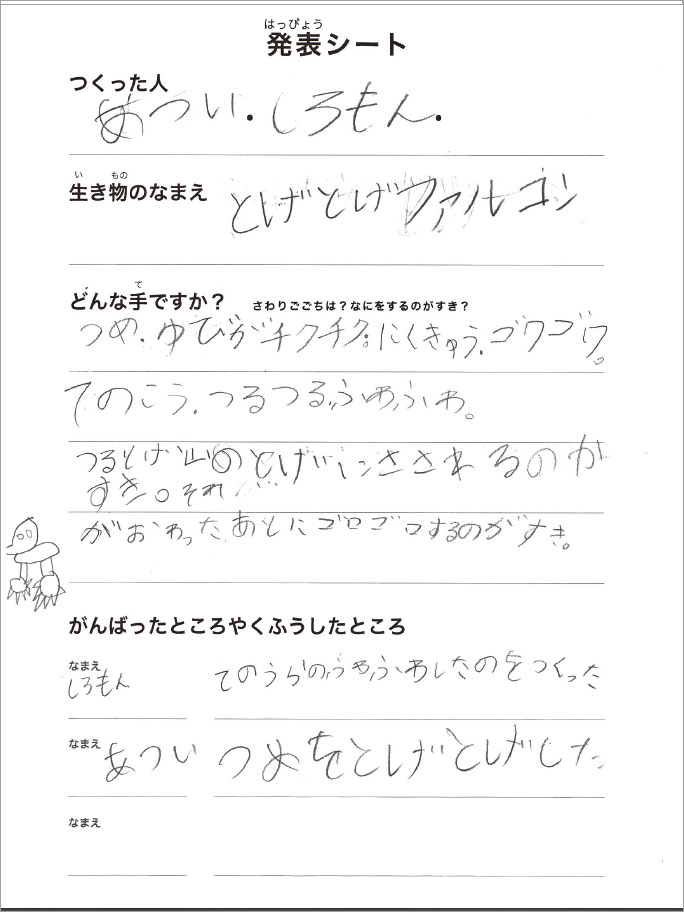 はっぴょう
発表シート
つくった人
あつい.しろもん.
い もの
生き物のなまえ
とげとげファルコン
て
どんな手ですか? さわりごごちは?なにをするのがすき?
つめ.ゆびがチクチク。にくきゅう.ゴワゴワ。
てのこう.つるつる,ふわふわ。
つるとげ山のとげにさされるのが
すき。それ
がおわったあとにゴロゴロするのがすき。
がんばったところやくふうしたところ
なまえ
しろもん てのうらのふわふわしたのをつくった
なまえ
あつい つめをとげとげした
なまえ